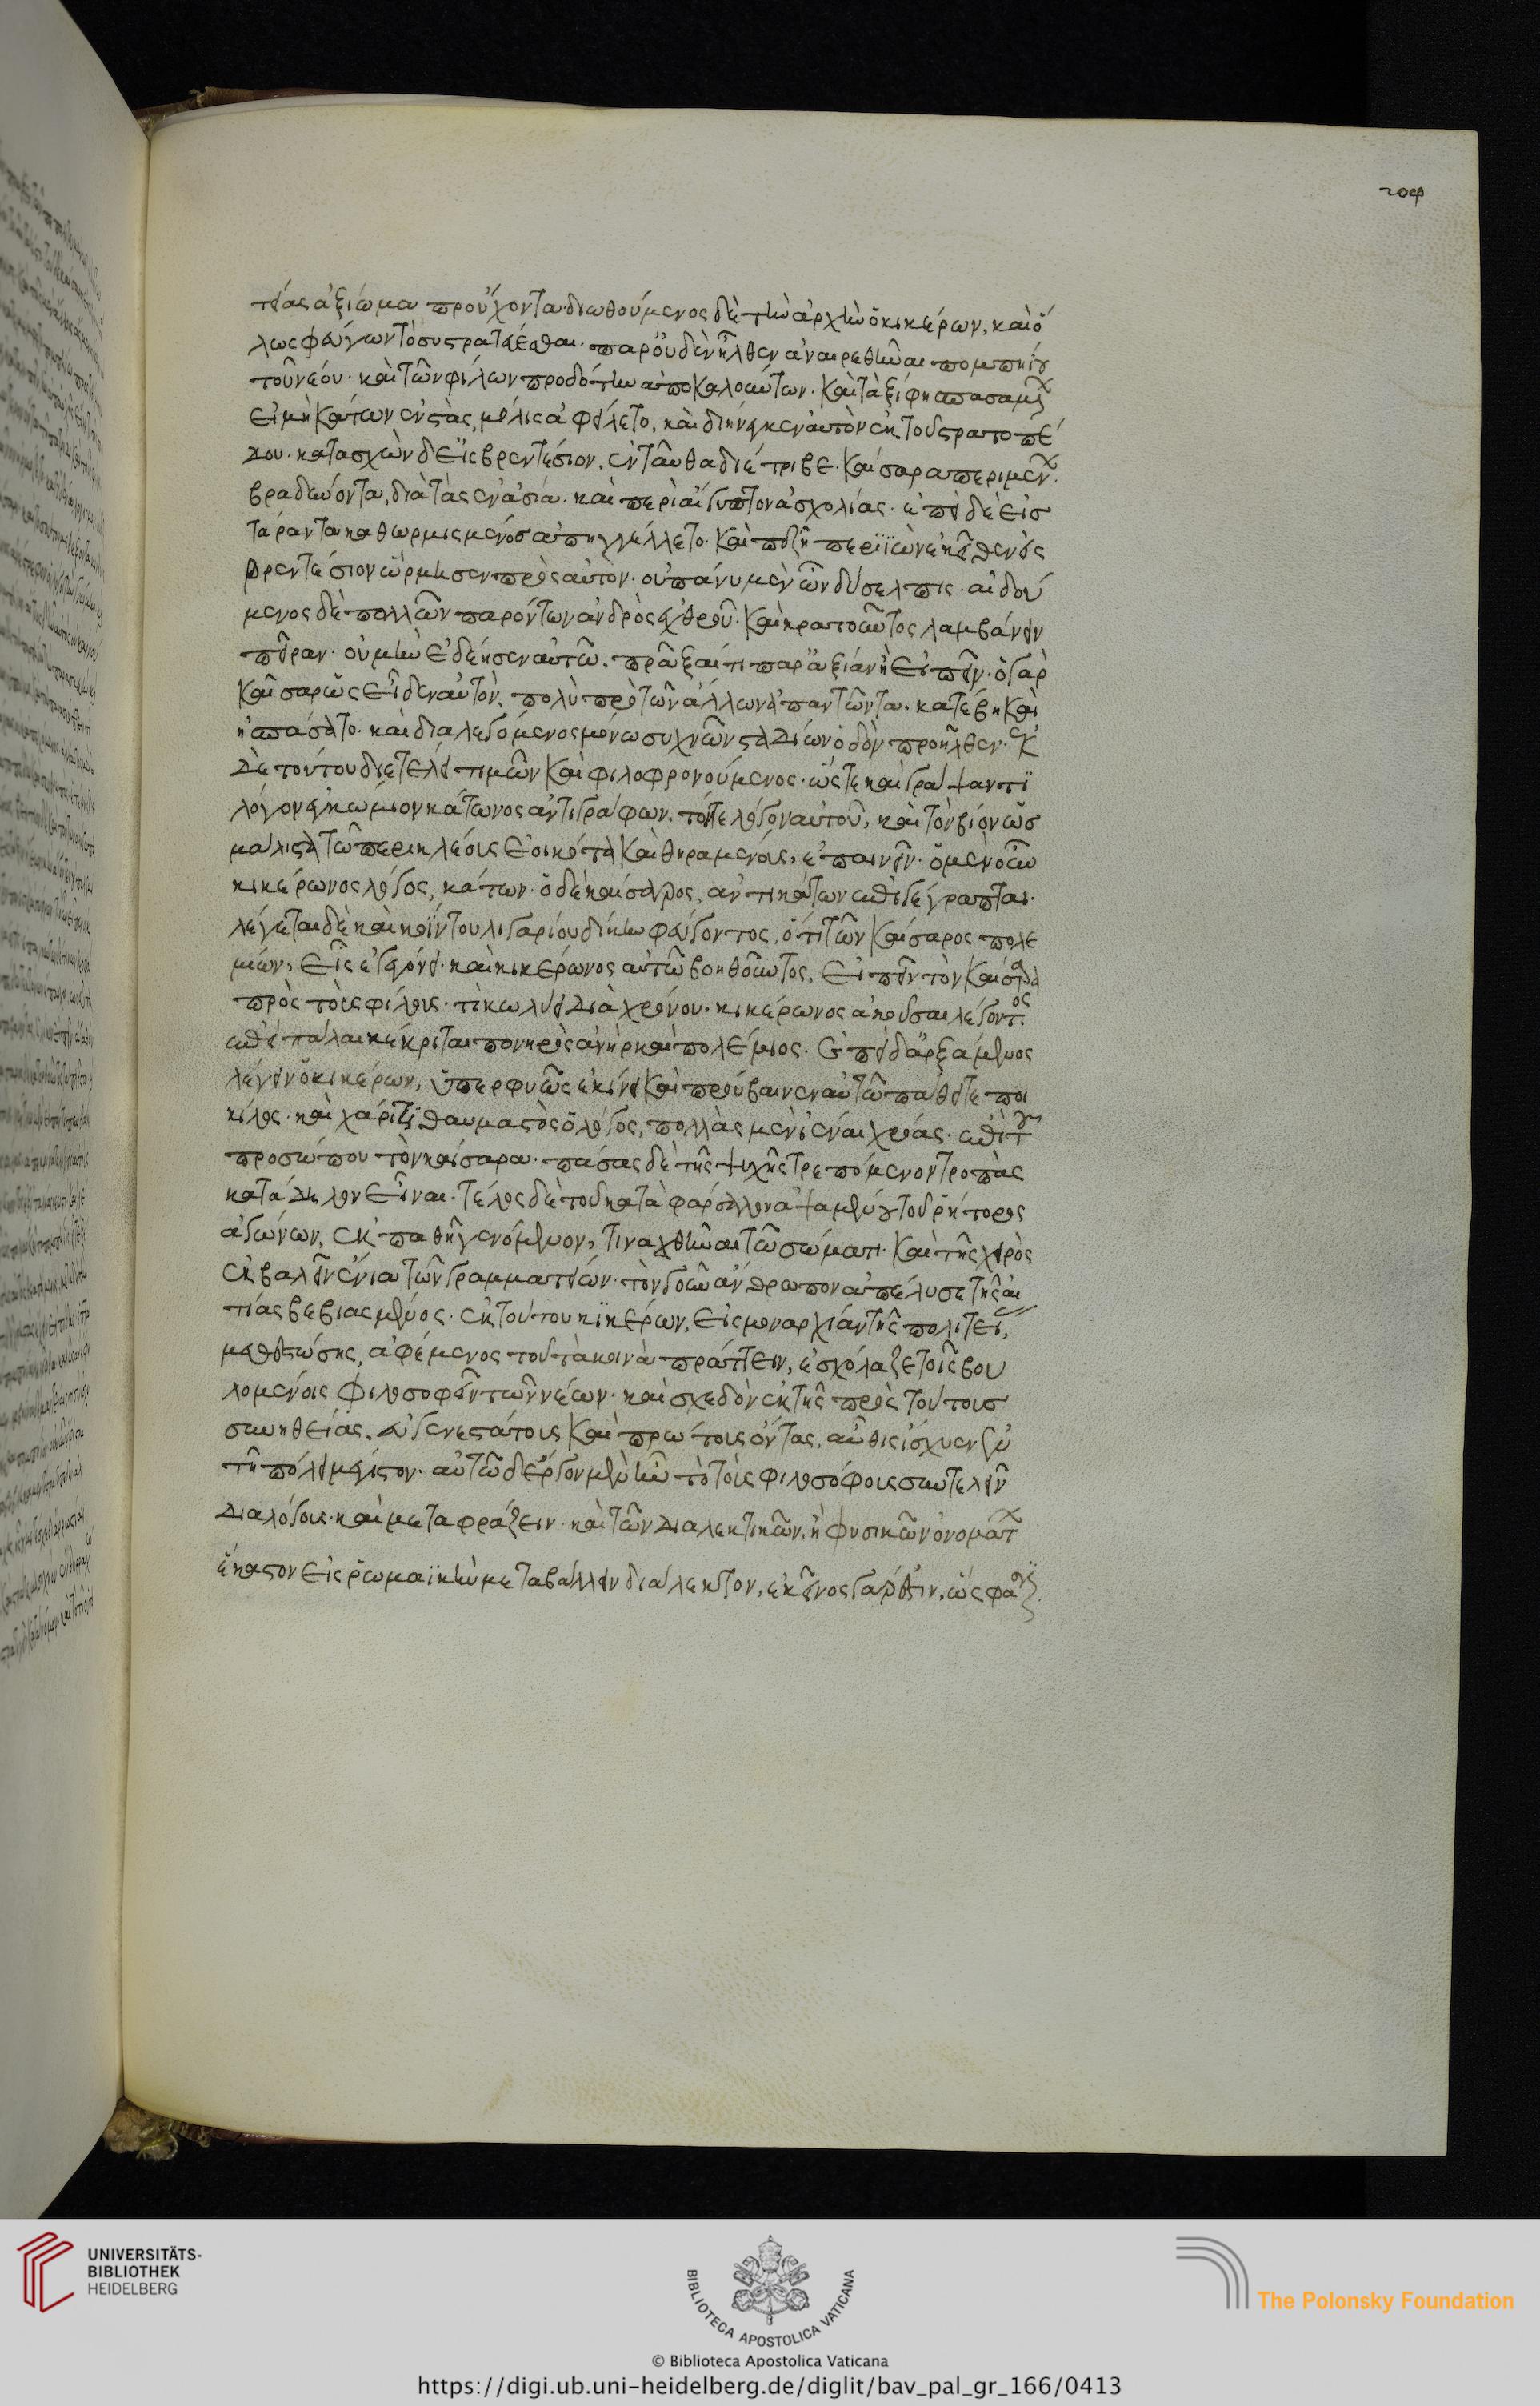 τείας ἀξίωμα προὔχοντα· διωθούμενος δὲ τὴν ἀρχὴν ὁ κικέρων, καὶ ὅ
λως φεύγων τὸ συστρατεύεσθαι. παρ' οὐδὲν ἦλθεν ἀναιρεθῆναι πομπηίου
τοῦ νέου· καὶ τῶν φίλων προδότην ἀποκαλούντων. καὶ τὰ ξίφη σπασαμένων
εἰ μὴ κάτων ἐνστὰς, μόλις ἀφείλετο, καὶ διήνεγκεν αὐτὸν ἐκ τοῦ στρατοπέ
δου. κατασχὼν δὲ εἰς βρεντέσιον, ἐνταῦθα διέτριβε. καίσαρα περιμένων.
βραδύνοντα, διὰ τὰς ἐν ἀσία. καὶ περὶ αἴγυπτον ἀσχολίας. ἐπεὶ δὲ εἰς
τάραντα καθωρμισμένος ἀπηγγέλλετο. καὶ πεζῆ περιϊὼν ἐκεῖθεν εἰς
βρεντέσιον ὥρμησεν πρὸς αὐτὸν. οὐ πάνυ μὲν ὢν δύσελπις. αἰδού
μενος δὲ πολλῶν παρόντων ἀνδρὸς ἐχθροῦ. καὶ κρατοῦντος λαμβάνειν
πεῖραν. οὐ μὴν ἐδέησεν αὐτῶ. πρᾶξαί τι παρ' ἀξίαν ἢ εἰπεῖν. ὁ γὰρ
καῖσαρ ὡς εἶδεν αὐτὸν. πολὺ πρὸ τῶν ἄλλων ἀπαντῶντα. κατέβη καὶ
ἠσπάσατο. καὶ διαλεγόμενος μόνω συχνῶν σταδίων ὁδὸν προῆλθεν. ἐκ
δὲ τούτου διετέλει τιμῶν καὶ φιλοφρονούμενος. ὥστε καὶ γράψαντι
λόγον ἐγκώμιον κάτωνος ἀντιγράφων. τόν τε λόγον αὐτοῦ, καὶ τὸν βίον ὡς
μάλιστα τῶ περικλέους ἐοικότα καὶ θηραμένους, ἐπαινεῖν. ὁ μὲν οὖν
κικέρωνος λόγος, κάτων. ὁ δὲ καίσαρος, ἀντικάτων ἐπιγέγραπται.
λέγεται δὲ καὶ κοΐντου λιγαρίου δίκην φεύγοντος, ὅτι τῶν καίσαρος πολε
μίων, εἷς ἐγεγόνει. καὶ κικέρωνος αὐτῶ βοηθοῦντος, εἰπεῖν τὸν καίσαρα
πρὸς τοὺς φίλους. τί κωλύει διὰ χρόνου. κικέρωνος ἀκοῦσαι λέγοντος.
ἐπεὶ πάλαι κέκριται πονηρὸς ἀνὴρ καὶ πολέμιος. ἐπεὶ δ' ἀρξάμενος
λέγειν ὁ κικέρων, ὑπερφυῶς ἐκίνει καὶ προὔβαινεν αὐτῶ πάθει τε ποι
κίλος. καὶ χάριτι θαυμαστὸς ὁ λόγος, πολλὰς μὲν ἱέναι χρόας. ἐπὶ τοῦ
προσώπου τὸν καίσαρα. πάσας δὲ τῆς ψυχῆς τρεπόμενον τροπὰς
κατάδηλον εἶναι. τέλος δὲ τοῦ κατὰ φάρσαλον ἁψαμένου τοῦ ῥήτορος
ἀγώνων, ἐκπαθῆ γενόμενον, τιναχθῆναι τῶ σώματι. καὶ τῆς χειρὸς
ἐκβαλεῖν ἔνια τῶν γραμματείων. τὸν γοῦν ἄνθρωπον ἀπέλυσε τῆς αἰ
τίας βεβιασμένος. ἐκ τούτου κικέρων, εἰς μοναρχίαν τῆς πολιτεί,
μεθεστώσης, ἀφέμενος τοῦ τὰ κοινὰ πράττειν, ἐσχόλαζε τοῖς βου
λομένοις φιλοσοφεῖν τῶν νέων. καὶ σχεδὸν ἐκ τῆς πρὸς τούτους
συνηθείας, εὐγενεστάτους καὶ πρώτους ὄντας, αὖθις ἴσχυεν ἐν
τῆ πόλει μέγιστον. αὐτῶ δ' ἔργον μὲν ἦν τὸ τοὺς φιλοσόφους συντελεῖν
διαλόγους. καὶ μεταφράζειν. καὶ τῶν διαλεκτικῶν, ἢ φυσικῶν ὀνομάτων
ἕκαστον εἰς ῥωμαϊκὴν μεταβάλλειν διάλεκτον, ἐκεῖνος γάρ ἐστιν, ὥς φασιν
UNIVERSITÄTS-
BIBLIOTHEK
HEIDELBERG
BIBLIOTECA APOSTOLICA VATICANA
The Polonsky Foundation
© Biblioteca Apostolica Vaticana
https://digi.ub.uni-heidelberg.de/diglit/bav_pal_gr_166/0413